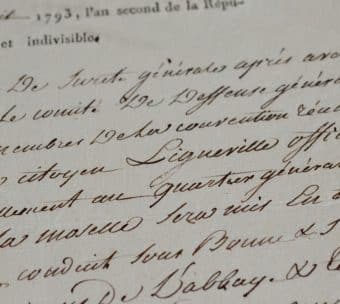 1793, l'an second de la Répu-
et indivisible.
De Sureté générales après avo
le comité De Deffense généra
membres De la convention réun
citoyen Ligneville offic
llement au quartier général
la moselle sera mis En
conduit sous Bonne & S
De L'abbaye &